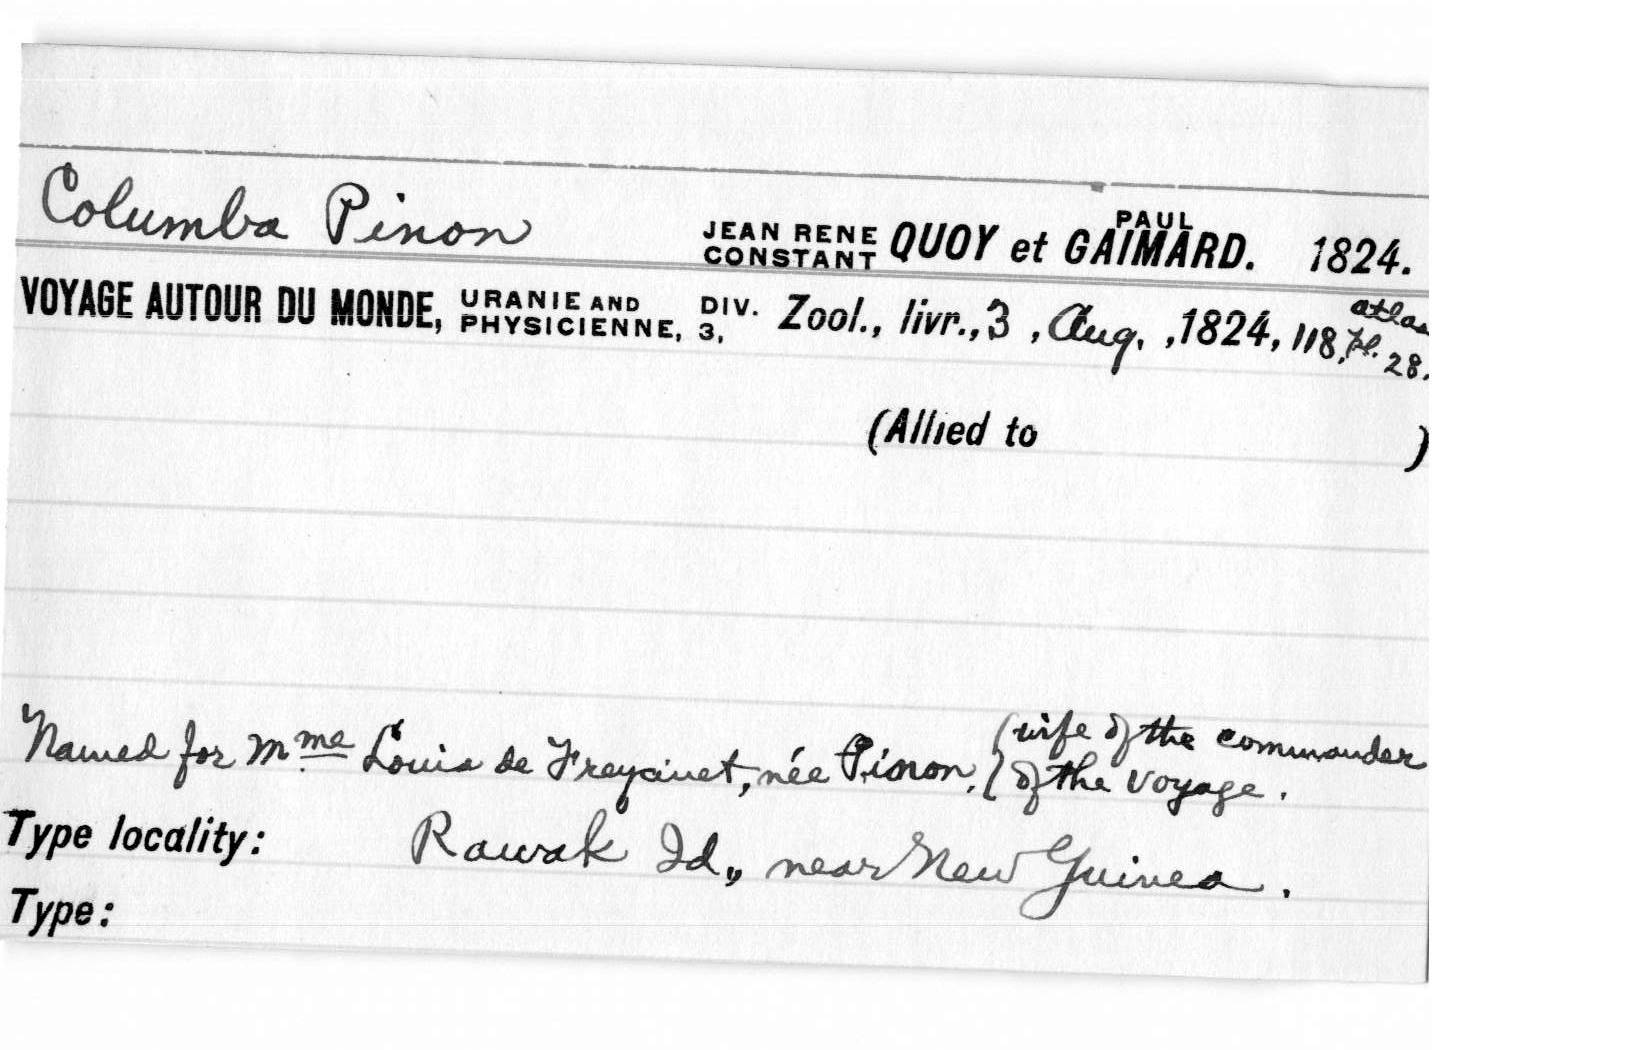 Columba Pinon JEAN RENE CONSTANT QUOY et PAUL GAIMARD. 1824.
VOYAGE AUTOUR DU MONDE, URANIE AND PHYSICIENNE, DIV. 3, Zool., livr., 3, Aug., 1824, 118, atlas pl. 28.
(Allied to )
Named for Mme. Louis de Freycinet, née Pinon, (wife of the commander
of the voyage.
Type locality: Rawak Id., near New Guinea.
Type: